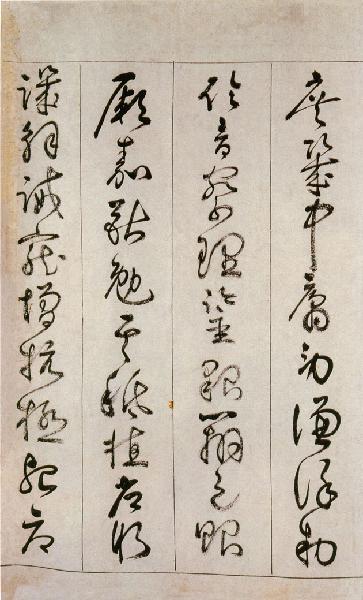 庶幾中庸勞謙謹勑
聆音察理鑒貌辨色貽
厥嘉猷勉其祗植省躬
譏誡寵增抗極殆辱